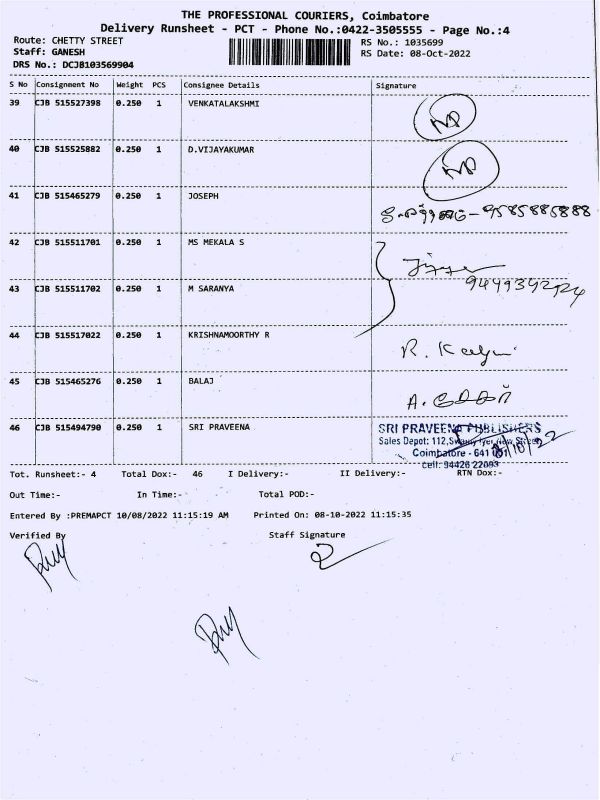 THE PROFESSIONAL COURIERS, Coimbatore
Delivery Runsheet - PCT - Phone No.:0422-3505555 - Page No.:4
Route: CHETTY STREET
RS No.: 1035699
Staff: GANESH
RS Date: 08-Oct-2022
DRS No.: DCJB103569904
S No Consignment No Weight PCS Consignee Details Signature
39 CJB 515527398 0.250 1 VENKATALAKSHMI
40 CJB 515525882 0.250 1 D.VIJAYAKUMAR
41 CJB 515465279 0.250 1 JOSEPH
9585885888
42 CJB 515511701 0.250 1 MS MEKALA S
43 CJB 515511702 0.250 1 M SARANYA
44 CJB 515517022 0.250 1 KRISHNAMOORTHY R
45 CJB 515465276 0.250 1 BALAJ
46 CJB 515494790 0.250 1 SRI PRAVEENA
SRI PRAVEENA PUBLISHERS
Sales Depot: 112, Swamy Iyer New Street
Coimbatore - 641 001
cell: 94426 22093
Tot. Runsheet:- 4 Total Dox:- 46 I Delivery:- II Delivery:- RTN Dox:-
Out Time:- In Time:- Total POD:-
Entered By :PREMAPCT 10/08/2022 11:15:19 AM Printed On: 08-10-2022 11:15:35
Verified By Staff Signature